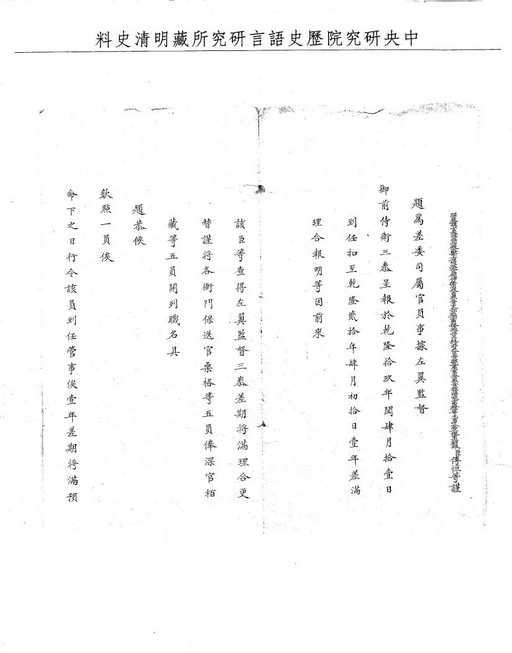 中央研究院歷史語言研究所藏明清史料
傅恒等謹
題為差委司屬官員事據左翼監督
御前侍衛三泰呈報於乾隆拾玖年閏肆月拾壹日
到任扣至乾隆貳拾年肆月初拾日壹年差滿
理合報明等因前來
該臣等查得左翼監督三泰差期將滿理合更
替謹將各衙門保送官柰格等五員俸深官栢
藏等五員開列職名具
題恭候
欽點一員俟
命下之日行令該員到任管事俟壹年差期將滿預